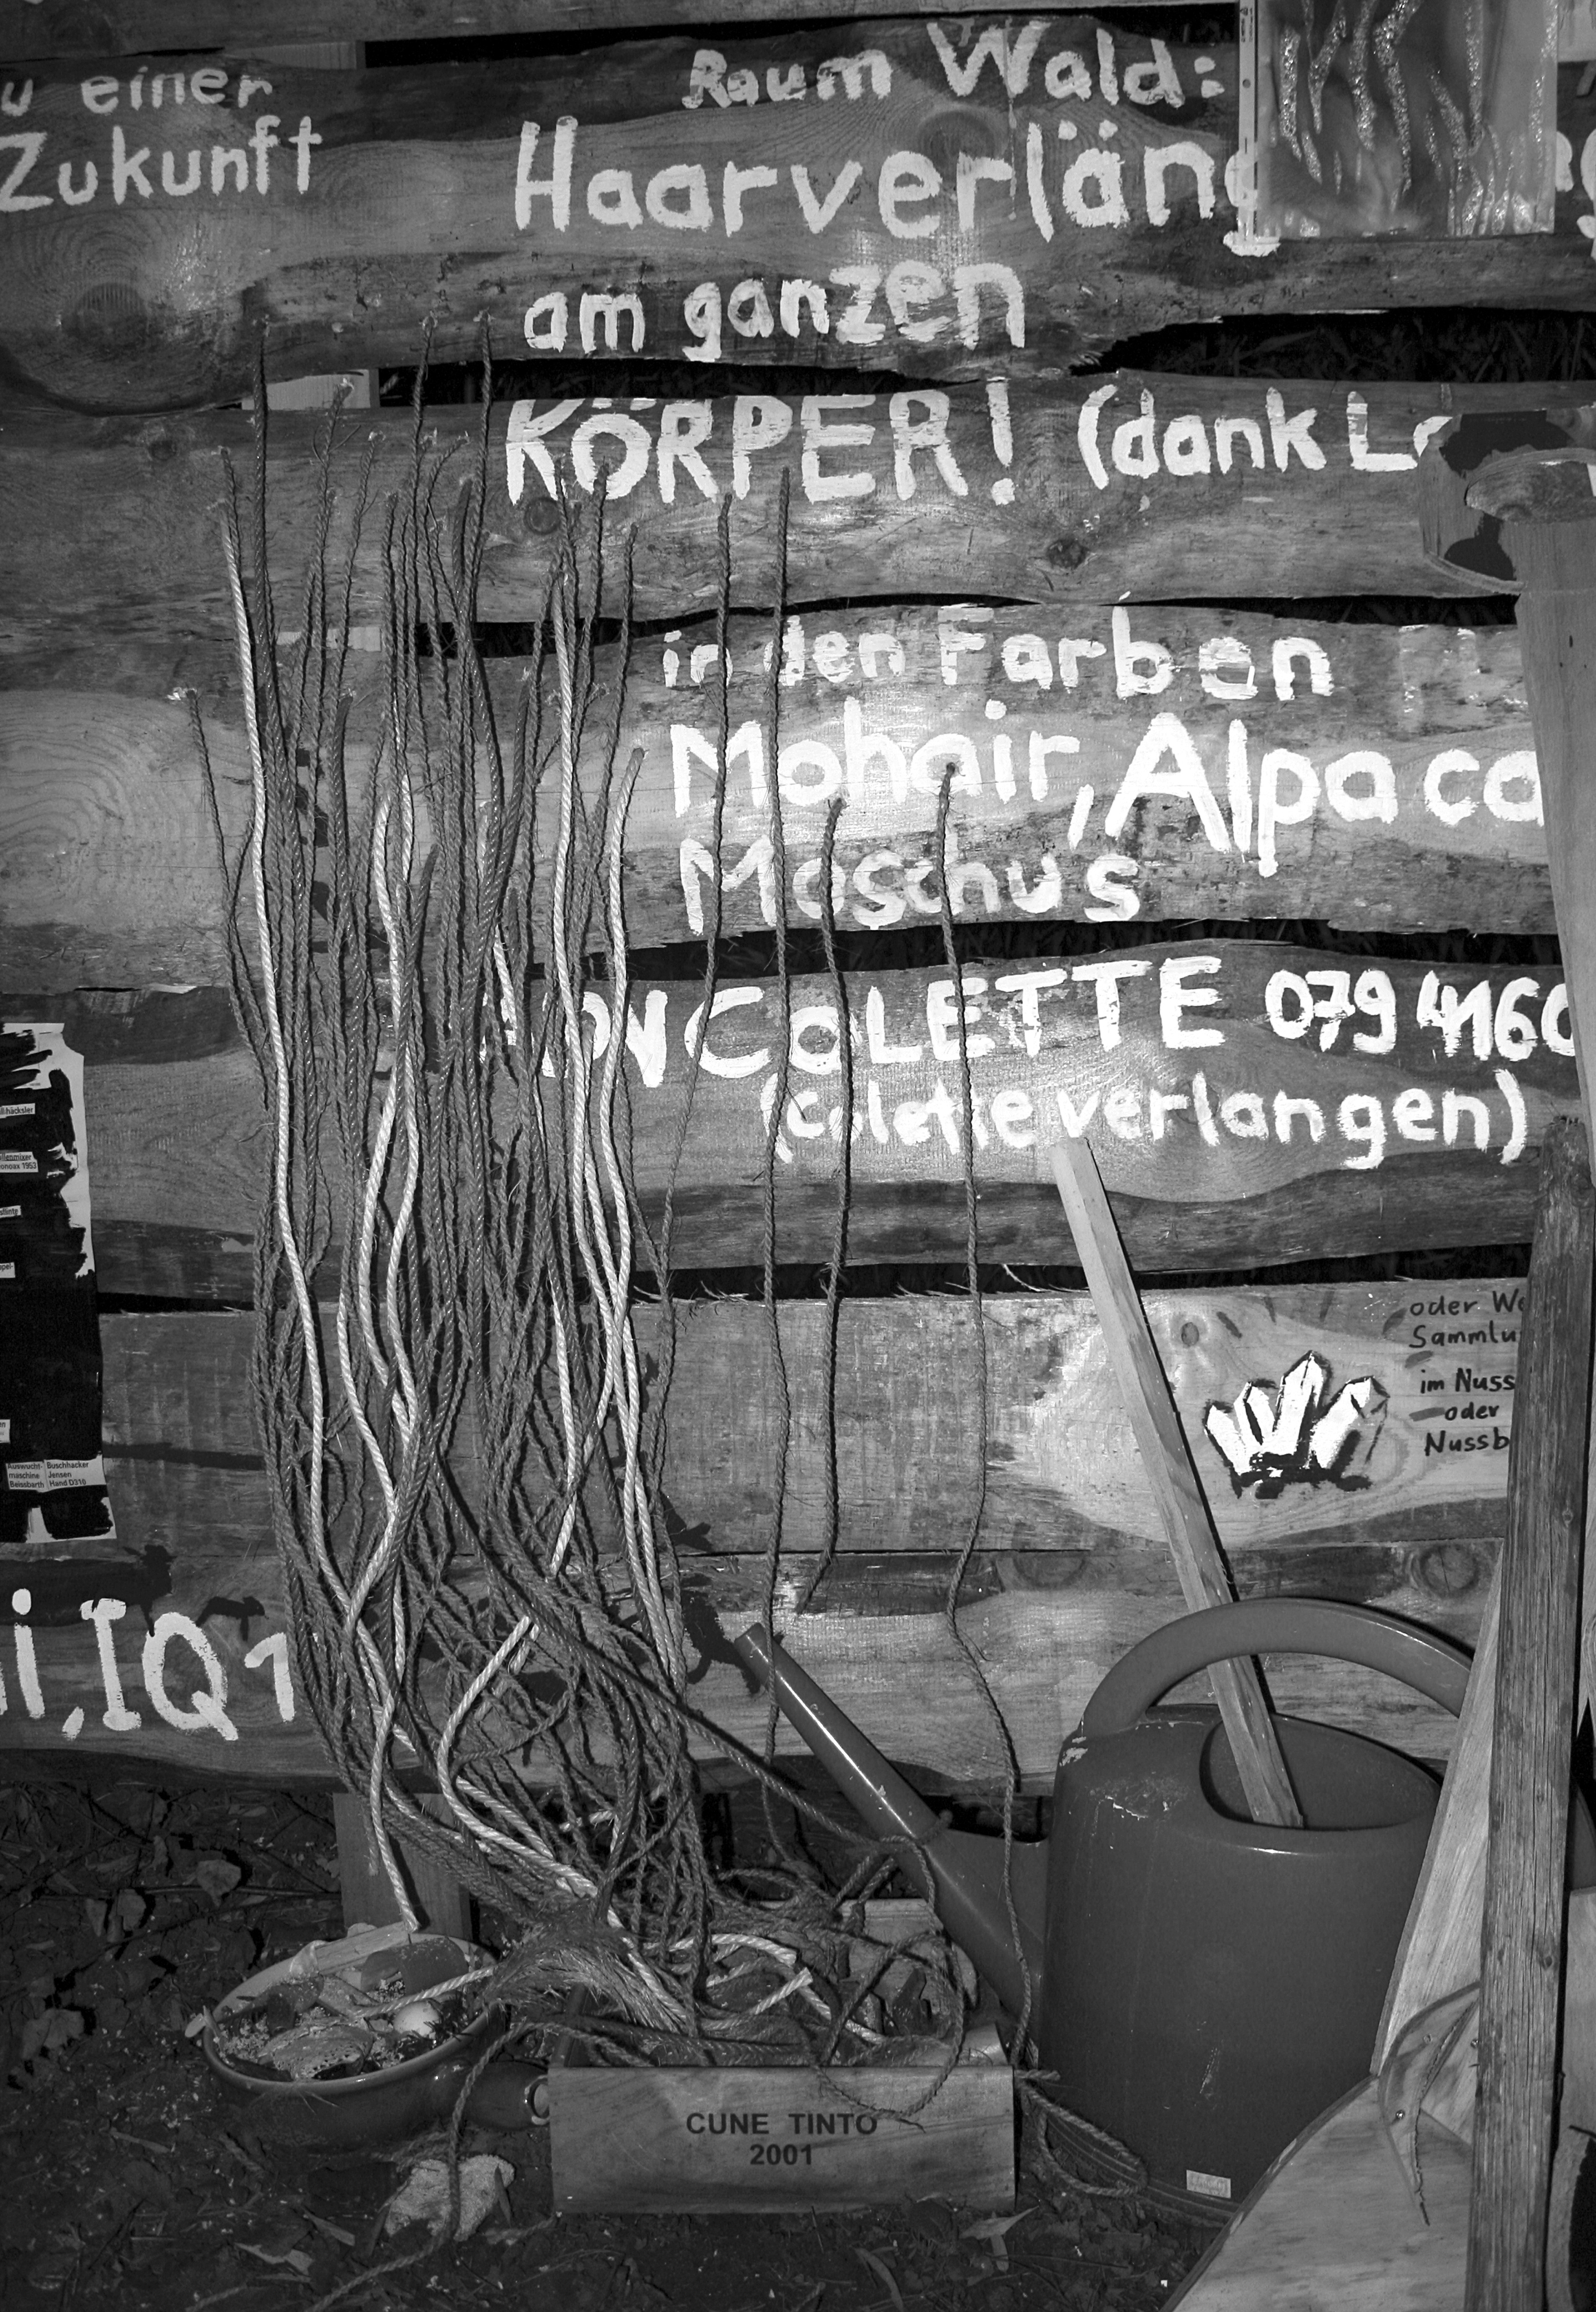 u einer
Zukunft
Raum Wald:
Haarverläng
am ganzen
KÖRPER! (dank L
in den Farben
Mohair, Alpaca
Moschus
COLETTE 079 4160
(colette verlangen)
oder We
Sammlu
im Nuss
oder
Nussb
Auswucht- Buschhacker
maschine Jensen
Beissbarth Hand D310
i, IQ 1
CUNE TINTO
2001